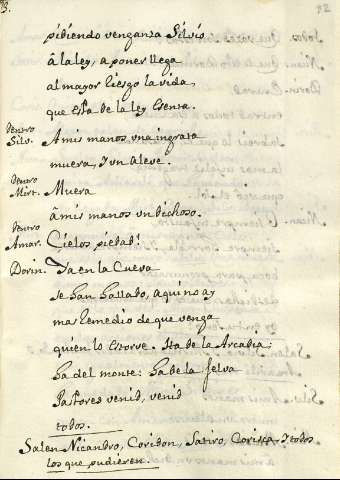 pidiendo venganza Silvio
â la ley, a poner llega
al mayor riesgo la vida,
que esta de la ley esenta.
Dentro
Silv. A mis manos vna ingrata
muera, y vn aleve.
Dentro
Mirt. Muera
â mis manos vn dichoso.
Dentro
Amar. Cielos piedad!
Dorin. Ya en la Cueva
se han hallado, aqui no ay
mas remedio de que venga
quien lo estorve. Ha de la Arcadia:
ha del monte: ha de la selva
Pastores venid, venid
todos.
Salen Nicandro, Coridon, Satiro, Corisca, y todos
los que pudieren.